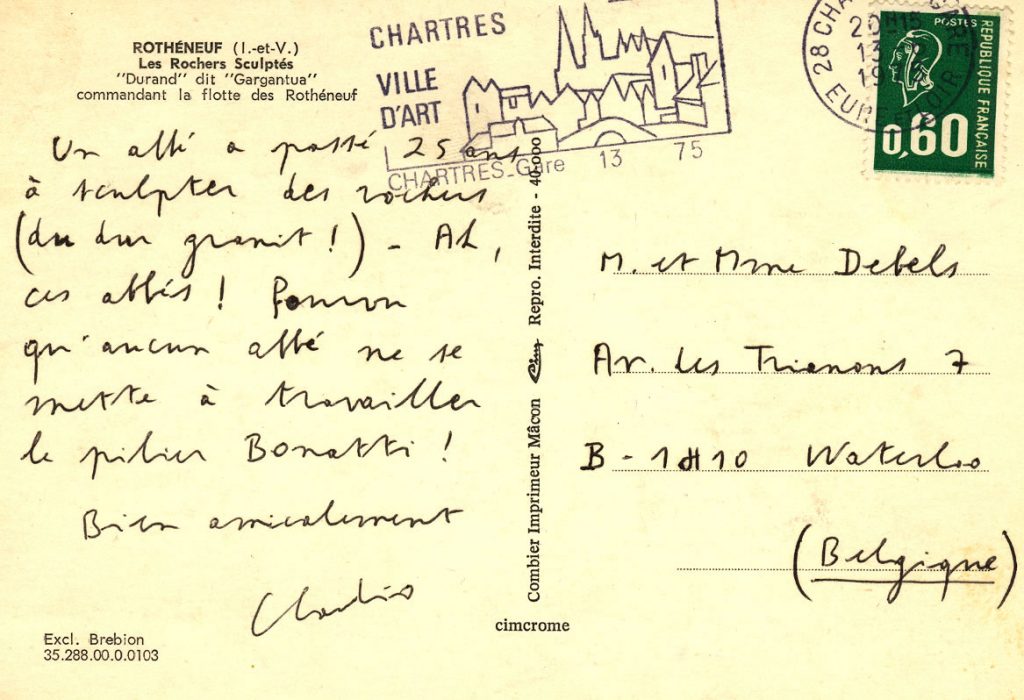 ROTHÉNEUF (I.-et-V.)
Les Rochers Sculptés
"Durand" dit "Gargantua"
commandant la flotte des Rothéneuf
CHARTRES
VILLE
D'ART
CHARTRES-Gare 13 75
28 CHARTRES GARE
20H15
13
19
EURE ET LOIR
POSTES
REPUBLIQUE FRANÇAISE
0,60
Un abbé a passé 25 ans
à sculpter des rochers
(du dur granit !) - Ah,
ces abbés ! Pourvu
qu'aucun abbé ne se
mette à travailler
le pilier Bonatti !
Bien amicalement
Claudio
Excl. Brebion
35.288.00.0.0103
Combier Imprimeur Mâcon Repro. Interdite - 40.000
cimcrome
M. et Mme Debels
Av. des Trianons 7
B - 1410 Waterloo
(Belgique)